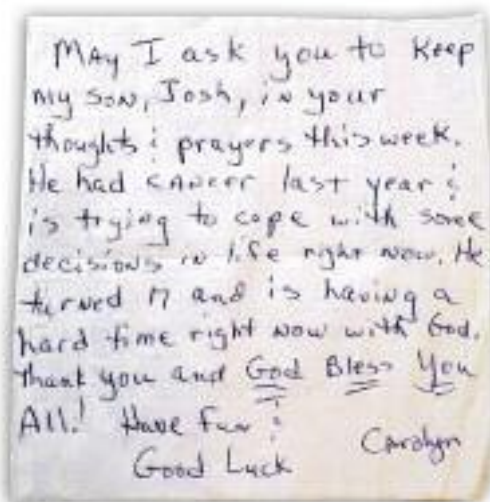 MAY I ask you to keep
my son, Josh, in your
thoughts & prayers this week.
He had cancer last year &
is trying to cope with some
decisions in life right now. He
turned 17 and is having a
hard time right now with God.
Thank you and God Bless You
All! Have Fun &
Good Luck
Carolyn